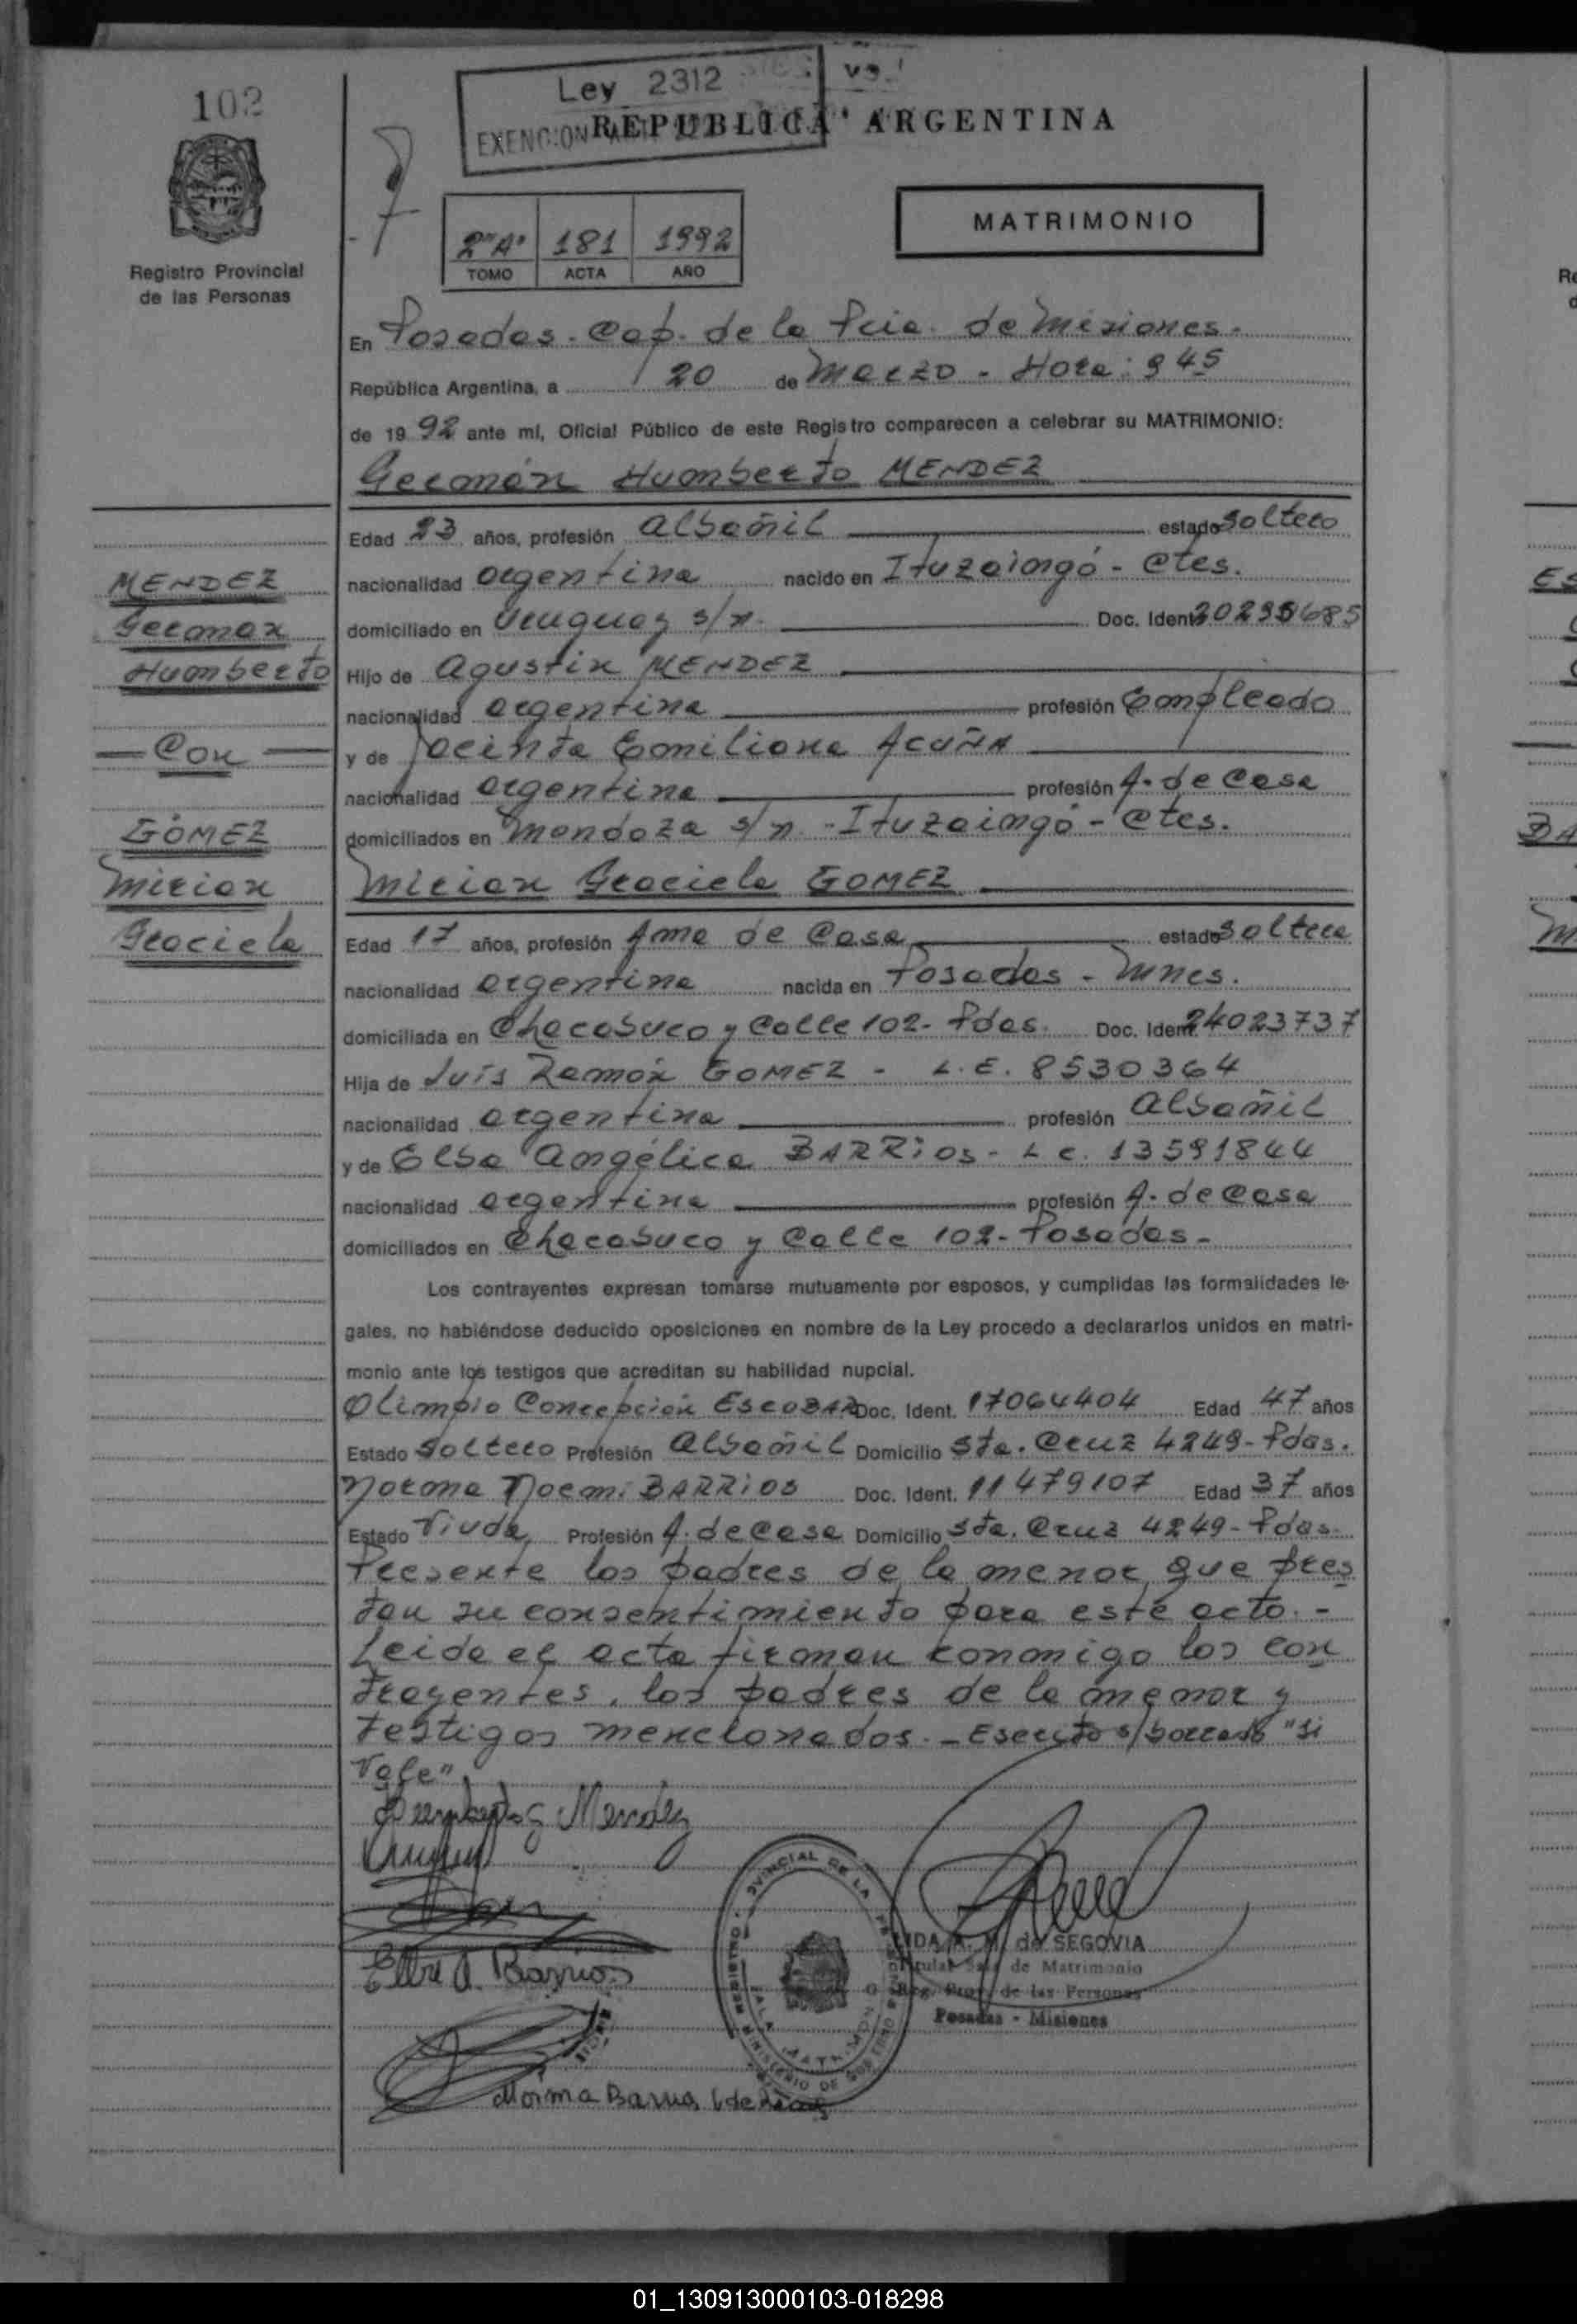 102
Ley 2312
REPUBLICA ARGENTINA
EXENCION
MATRIMONIO
2º"A" 181 1992
TOMO ACTA AÑO
Registro Provincial
de las Personas
En Posadas - Cap. de la Pcia. de Misiones.
República Argentina, a 20 de Marzo - Hora: 9 45
de 1992 ante mí, Oficial Público de este Registro comparecen a celebrar su MATRIMONIO:
Germán Humberto MENDEZ
Edad 23 años, profesión albañil estado soltero
nacionalidad argentina nacido en Ituzaingó - Ctes.
domiciliado en Uruguay s/n. Doc. Ident.
Hijo de Agustin MENDEZ
nacionalidad argentina profesión Empleado
y de Jacinta Emiliana ACUÑA
nacionalidad argentina profesión A. de Casa
domiciliados en Mendoza s/n. - Ituzaingó - Ctes.
MENDEZ
German
Humberto
Con
GÓMEZ
Mirian
Graciela
Mirian Graciela GOMEZ
Edad 17 años, profesión Ama de Casa estado soltera
nacionalidad argentina nacida en Posadas - Mnes.
domiciliada en Chacabuco y Calle 102 - Pdas. Doc. Ident. 24023737
Hija de Luís Ramón GOMEZ - L.E. 8530364
nacionalidad argentina profesión albañil
y de Elba Angélica BARRiOS - L C. 13591844
nacionalidad argentina profesión A. de Casa
domiciliados en Chacabuco y Calle 102 - Posadas -
Los contrayentes expresan tomarse mutuamente por esposos, y cumplidas las formalidades le-
gales, no habiéndose deducido oposiciones en nombre de la Ley procedo a declararlos unidos en matri-
monio ante los testigos que acreditan su habilidad nupcial.
Olimpio Concepción ESCOBAR Doc. Ident. 17064404 Edad 47 años
Estado soltero Profesión albañil Domicilio Sta. Cruz 4249 - Pdas.
Norma Noemi BARRiOS Doc. Ident. 11479107 Edad 37 años
Estado Viuda Profesión A. de Casa Domicilio Sta. Cruz 4249 - Pdas.
Presente los padres de la menor que pres
tan su consentimiento para este acto. -
Leida el acta firman conmigo los con
trayentes, los padres de la menor y
testigos mencionados. - Escrito s/borrado "Si
Vale"
Mendez
Elba A. Barrios
Norma Barrios
de SEGOVIA
Titular Sala de Matrimonio
Reg. Prov. de las Personas
Posadas - Misiones
01_130913000103-018298